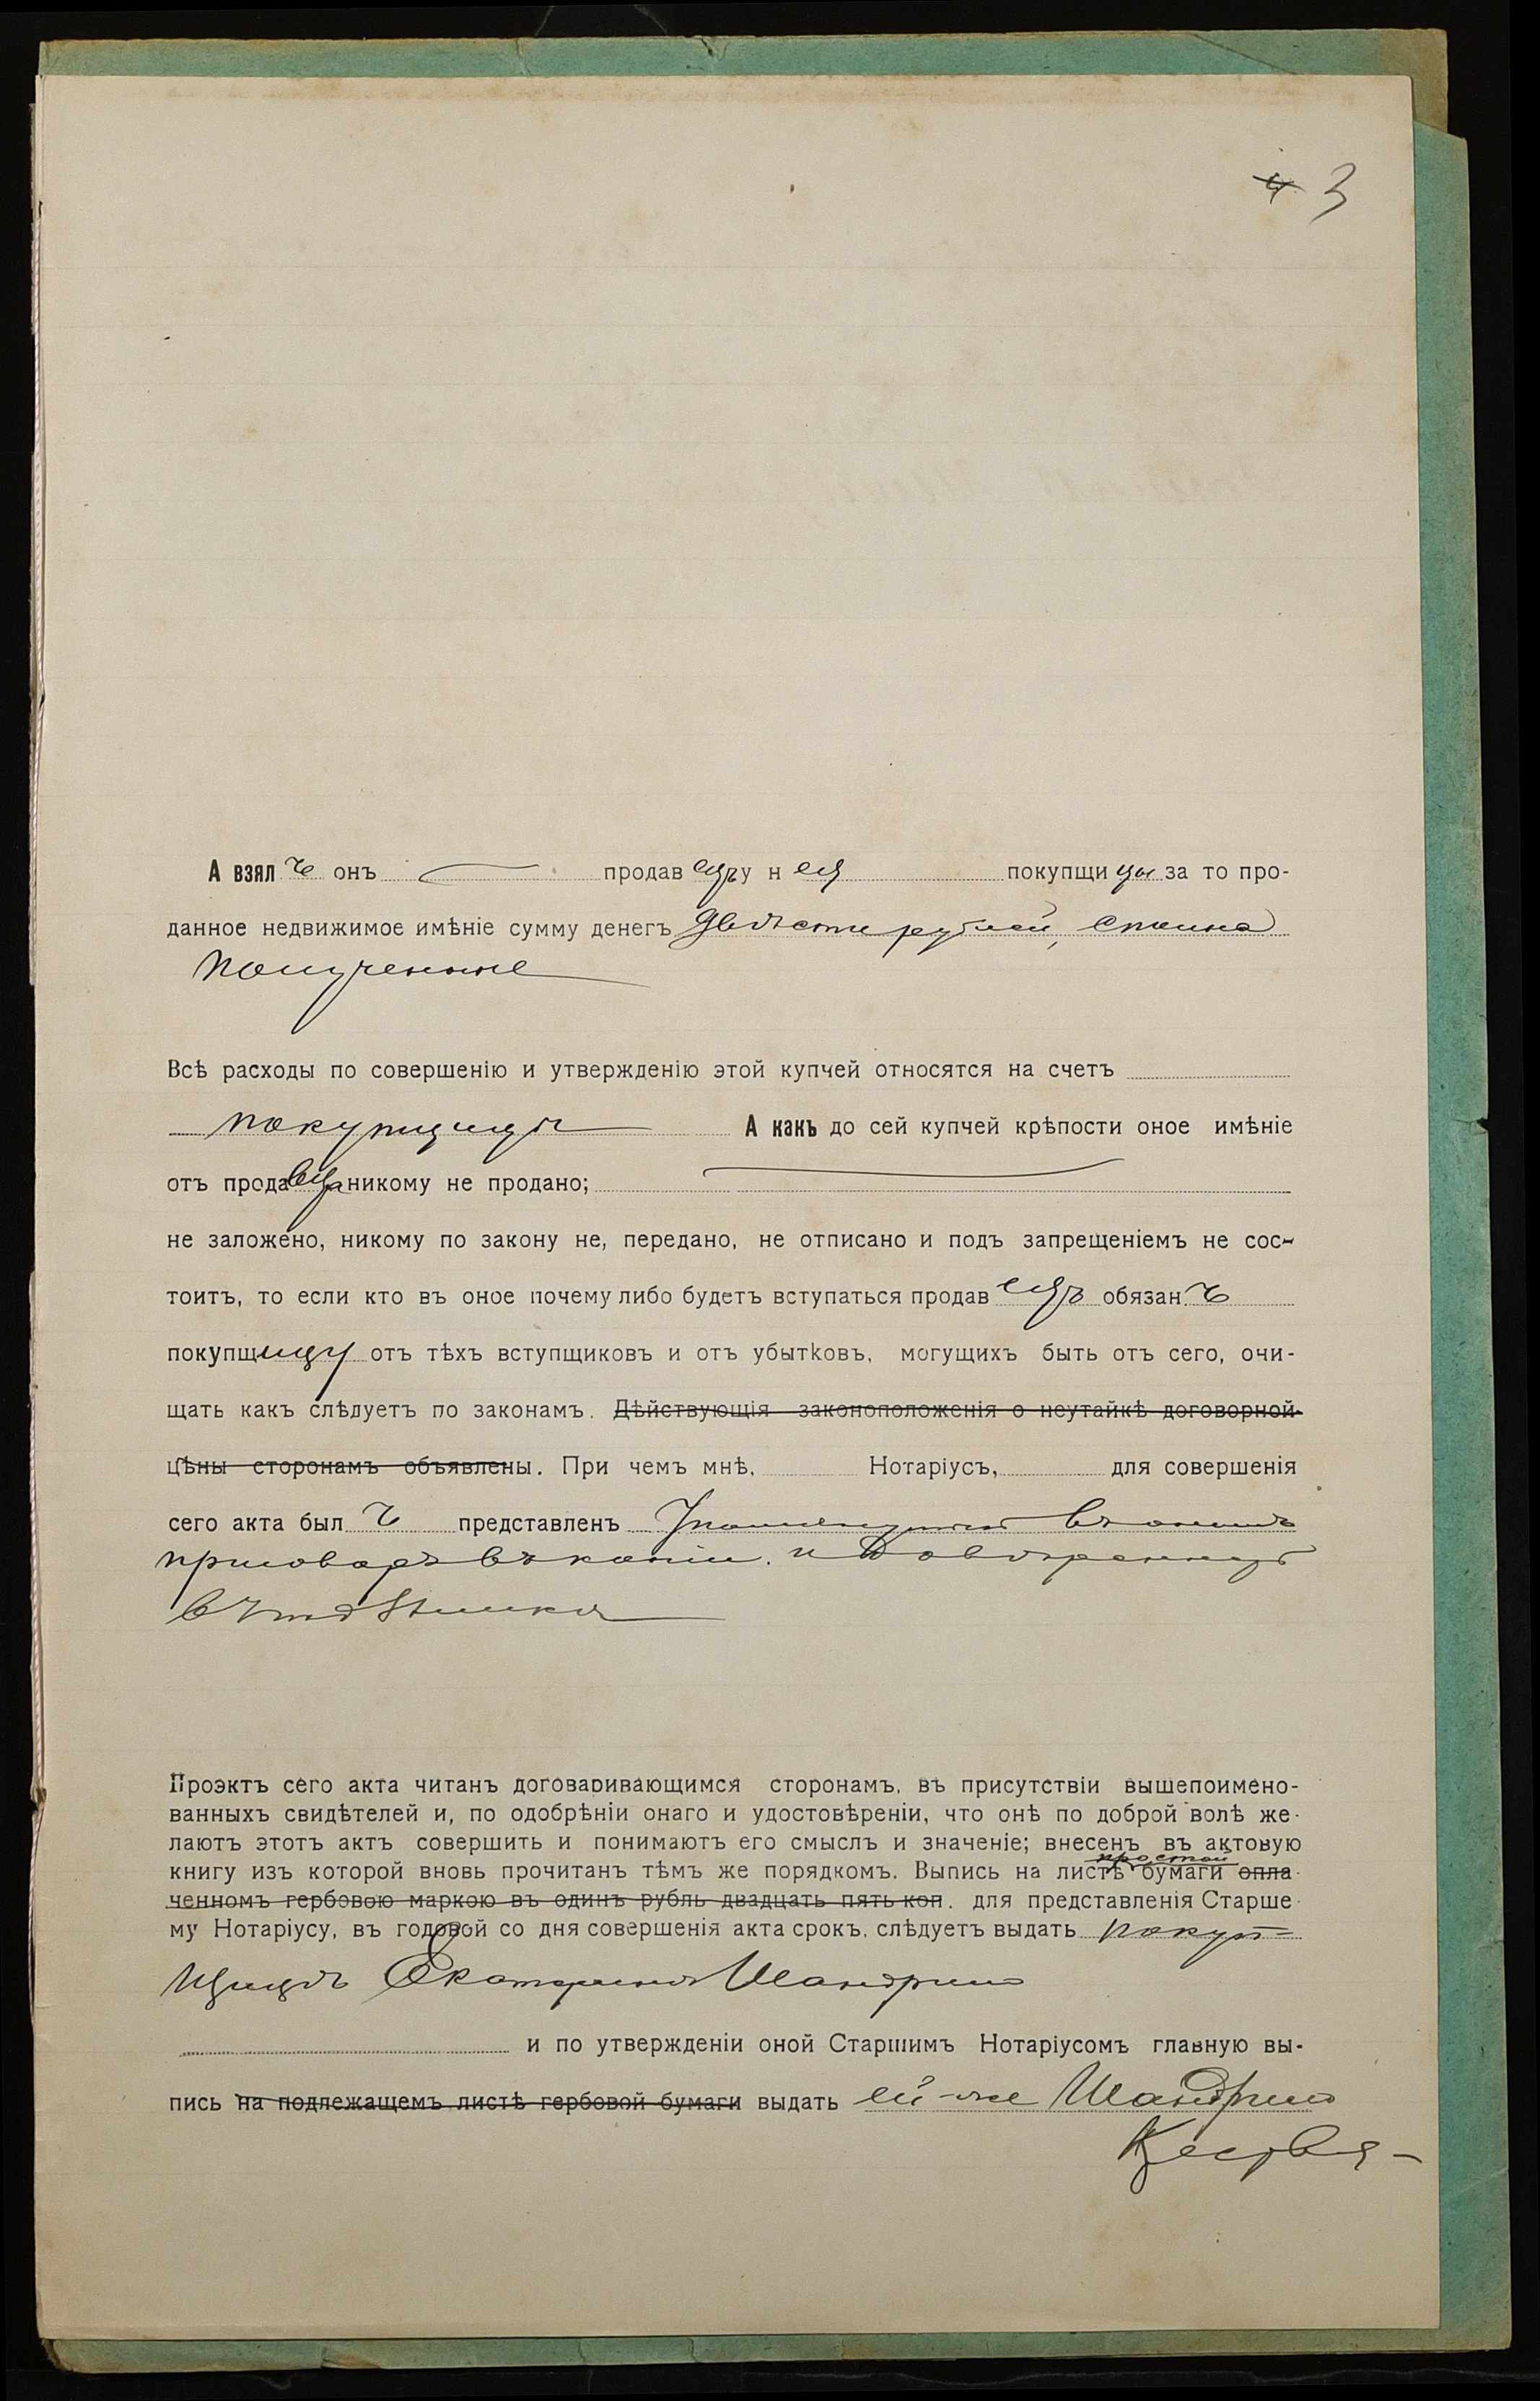 4 3
А взялъ онъ продавецъ у нея покупщицы за то про-
данное недвижимое имѣніе сумму денегъ Двѣсти рублей, сполна
полученные
Всѣ расходы по совершенію и утвержденію этой купчей относятся на счетъ
покупщицы А какъ до сей купчей крѣпости оное имѣніе
отъ продавца никому не продано;
не заложено, никому по закону не, передано, не отписано и подъ запрещеніемъ не сос-
тоитъ, то если кто въ оное почему либо будетъ вступаться продавецъ обязанъ
покупщицу отъ тѣхъ вступщиковъ и отъ убытковъ, могущихъ быть отъ сего, очи-
щать какъ слѣдуетъ по законамъ. Дѣйствующія законоположенія о неутайкѣ договорной
цѣны сторонамъ объявлены. При чемъ мнѣ, Нотаріусъ, для совершенія
сего акта былъ представленъ
приговоръ въ копіи. и
Проэктъ сего акта читанъ договаривающимся сторонамъ, въ присутствіи вышепоимено-
ванныхъ свидѣтелей и, по одобрѣніи онаго и удостовѣреніи, что онѣ по доброй волѣ же-
лаютъ этотъ актъ совершить и понимаютъ его смыслъ и значеніе; внесенъ въ актовую
книгу изъ которой вновь прочитанъ тѣмъ же порядкомъ. Выпись на листѣ простой бумаги опла-
ченномъ гербовою маркою въ одинъ рубль двадцать пять коп. для представленія Старше-
му Нотаріусу, въ годовой со дня совершенія акта срокъ, слѣдуетъ выдать покуп-
щицѣ Екатеринѣ Шандриной
и по утвержденіи оной Старшимъ Нотаріусомъ главную вы-
пись на подлежащемъ листѣ гербовой бумаги выдать ей-же Шандриной